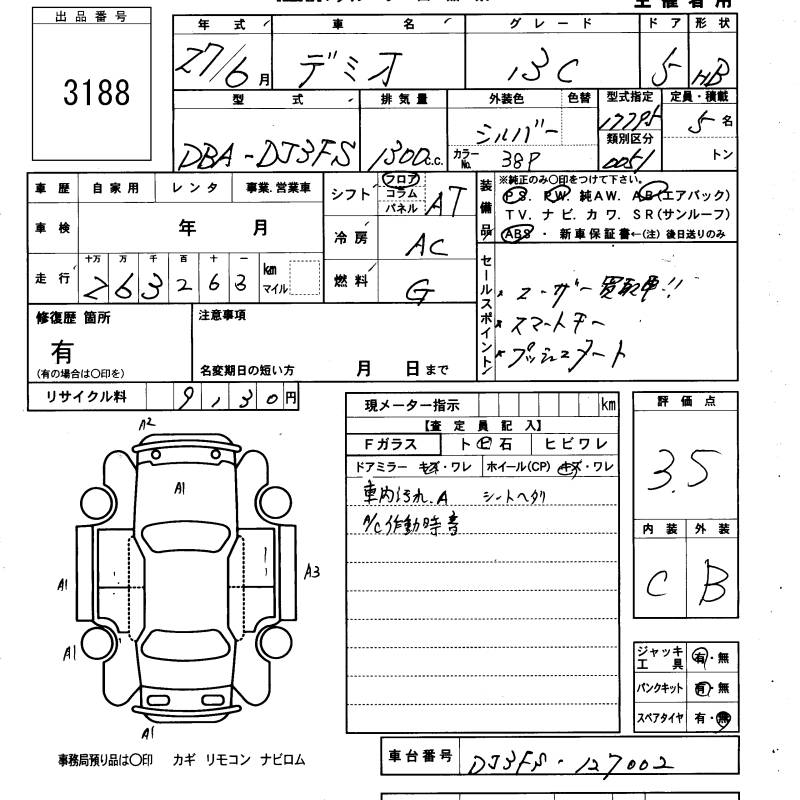 主催者用
出品番号
3188
年式 車名 グレード ドア 形状
27/6月 デミオ 13C 5 HB
型式 排気量 外装色 色替 型式指定 定員・積載
DBA-DJ3FS 1300c.c. シルバー 17795 5名
カラーNo. 38P 類別区分 0051 トン
車歴 自家用 レンタ 事業.営業車
車検 年 月
走行 十万 万 千 百 十 一 km マイル
2 6 3 2 6 3
シフト フロア コラム パネル AT
冷房 AC
燃料 G
装備品 ※純正のみ〇印をつけて下さい。
PS. PW. 純AW. AB(エアバック)
TV. ナビ. カワ. SR(サンルーフ)
ABS・新車保証書←(注)後日送りのみ
セールスポイント
ユーザー買取車!!
スマートキー
プッシュスタート
修復歴 箇所
有
(有の場合は〇印を)
注意事項
名変期日の短い方 月 日まで
リサイクル料 9,130円
現メーター指示 km
【査定員記入】
Fガラス ト ビ 石 ヒビワレ
ドアミラー キズ・ワレ ホイール(CP) キズ・ワレ
車内汚れ.A シートヘタリ
A/C作動時音
評価点
3.5
内装 外装
C B
ジャッキ工具 有・無
パンクキット 有・無
スペアタイヤ 有・無
A2
A1
A1
A3
A1
A1
事務局預り品は〇印 カギ リモコン ナビロム
車台番号 DJ3FS-127002